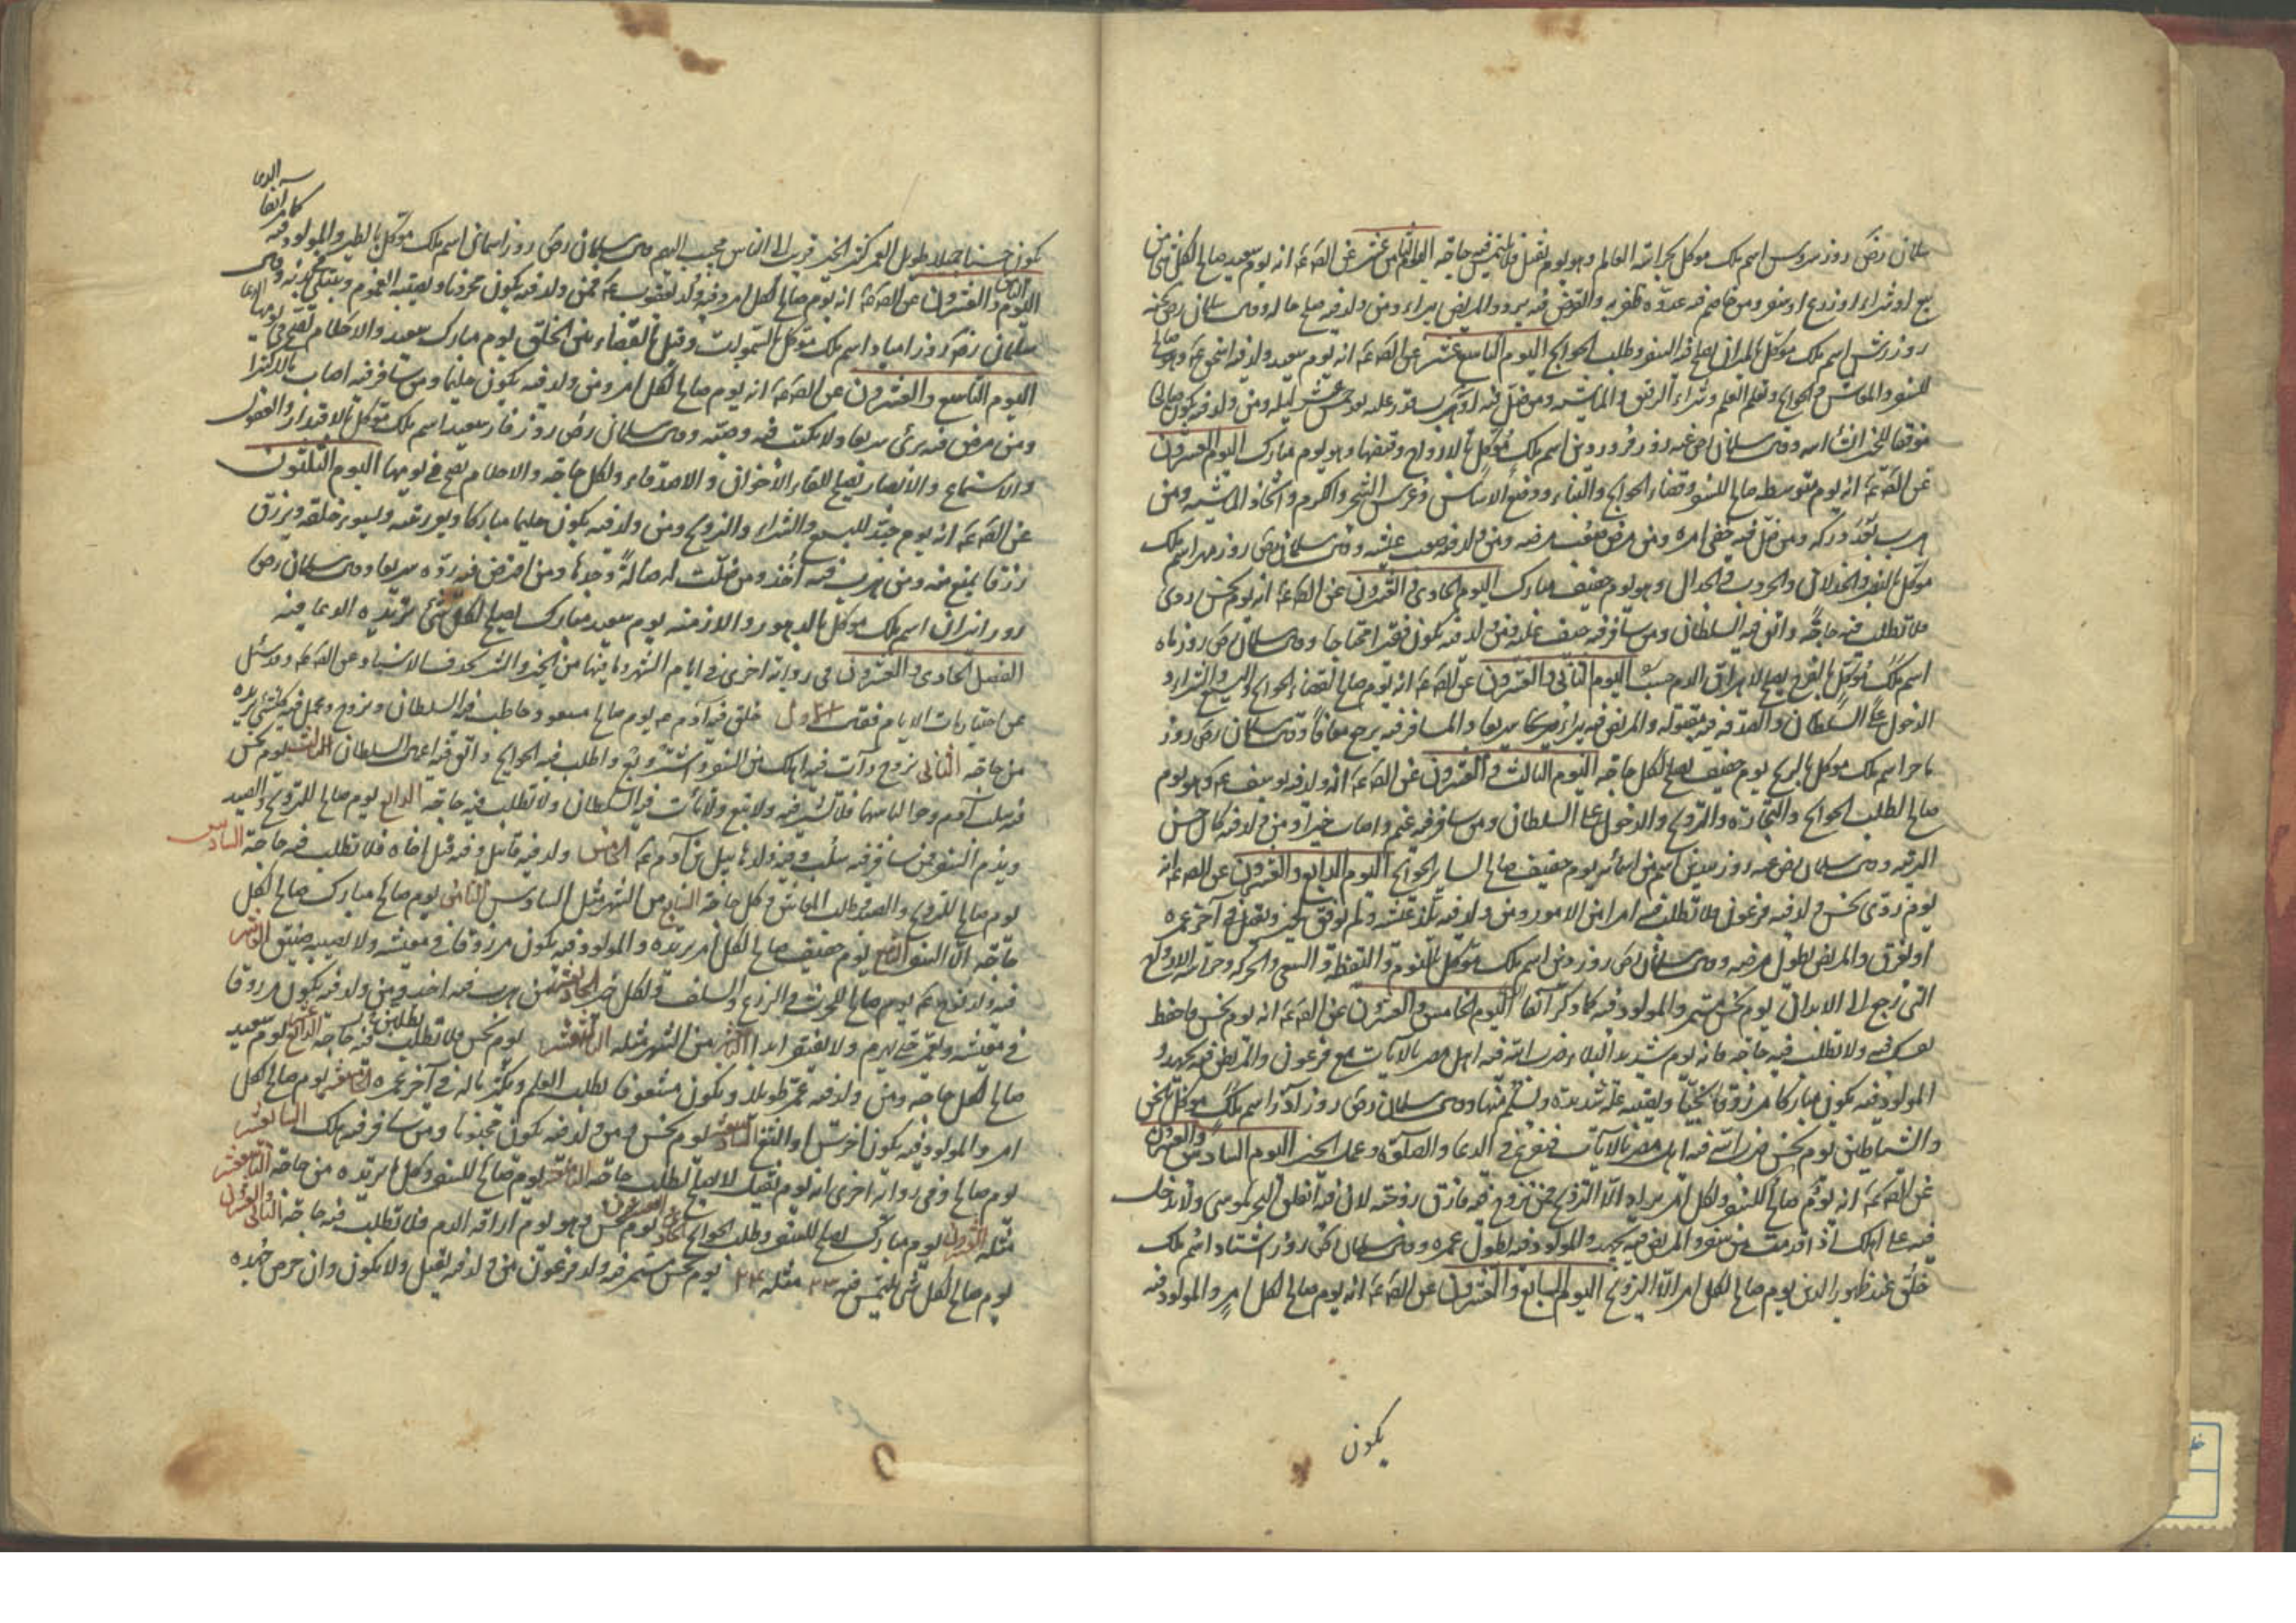 سلمان رض روز سروش اسم ملك موكل بحراسة العالم وهو يوم ثقيل فلا يلتمس فيه حاجة اليوم الثامن عشر عن الص ع انه يوم سعيد صالح لكل شئ من
بيع او شراء او زرع او سفر ومن خاصم فيه عدوه ظفر به والقرض فيه يرد والمريض يبرا ومن ولد فيه صلح حاله وقال سلمان رض
روز رش اسم ملك موكل بالميزان يصلح فيه السفر وطلب الحوايج اليوم التاسع عشر عن الص ع انه يوم سعيد ولد فيه اسحق ع وهو صالح
للسفر والمعاش والحوايج وتعلم العلم وشراء الرقيق والماشية ومن ضل فيه او هرب قدر عليه بعد خمس عشر ليلة ومن ولد فيه يكون صالحا
موفقا للخير انشاء الله وقال سلمان رض عنه روز فرور دين اسم ملك موكل بالارواح وقبضها وهو يوم مبارك اليوم العشرون
عن الص ع انه يوم متوسط صالح للسفر وقضاء الحوايج والبناء ووضع الاساس وغرس الشجر والكرم واتخاذ الماشية ومن
هرب بعد دركه ومن ضل فيه خفى امره ومن مرض صعب مرضه ومن ولد فيه صعب عيشه وقال سلمان رض روز بهرام اسم ملك
موكل بالنصر والخذلان والحروب والجدال وهو يوم خفيف مبارك اليوم الحادى والعشرون عن الص ع انه يوم نحس ردى
فلا تطلب فيه حاجة واتق فيه السلطان ومن سافر فيه خيف عليه ومن ولد فيه يكون فقيرا محتاجا وقال سلمان رض روز ماه
اسم ملك موكل بالفرح يصلح لاهراق الدم حسب اليوم الثانى والعشرون عن الص ع انه يوم صالح لقضاء الحوايج والبيع والشراء و
الدخول على السلطان والصدقة فيه مقبولة والمريض فيه يبرا سريعا والمسافر فيه يرجع معافا وقال سلمان رض روز
باد اسم ملك موكل بالريح يوم خفيف يصلح لكل حاجة اليوم الثالث والعشرون عن الص ع انه ولد فيه يوسف ع وهو يوم
صالح لطلب الحوايج والتجارة والتزويج والدخول على السلطان ومن سافر فيه غنم واصاب خيرا ومن ولد فيه كان حسن
التربية وقال سلمان رض عنه روز اسم من اسمائه يوم خفيف صالح لساير الحوايج اليوم الرابع والعشرون عن الص ع انه
يوم ردى نحس ولد فيه فرعون فلا تطلب فيه امرا من الامور ومن ولد فيه نكد عيشه ولم يوفق لخير ويقتل في آخر عمره
او يغرق والمريض يطول مرضه وقال سلمان رض روز دين اسم ملك موكل بالنوم واليقظة والسعى والحركة وحراسة الارواح
الى ترجع الى الابدان يوم نحس مستمر والمولود فيه كما ذكر آنفا اليوم الخامس والعشرون عن الص ع انه يوم نحس فاحفظ
نفسك فيه ولا تطلب فيه حاجة فانه يوم شديد البلاء ضرب الله فيه اهل مصر بالآيات مع فرعون والمريض فيه يجهد و
المولود فيه يكون مباركا مرزوقا نجيبا ويصيبه علة شديدة ويسلم منها وقال سلمان رض روز آرد اسم ملك موكل بالجن
والشياطين يوم نحس ضرب الله فيه اهل مصر بالآيات فتفرغ في الدعا والصلوة وعمل الخير اليوم السادس والعشرون
عن الص ع انه يوم صالح للسفر ولكل امر يراد الا التزويج فمن تزوج فيه فارق زوجته لان فيه انفلق البحر لموسى ولا تدخل
فيه على اهلك اذا قدمت من سفر والمريض فيه يجهد والمولود فيه يطول عمره وقال سلمان رض روز اشتاد اسم ملك
خلق عند ظهور الدين يوم صالح لكل امر الا التزويج اليوم السابع والعشرون عن الص ع انه يوم صالح لكل امر والمولود فيه
يكون
يكون حسنا جميلا طويل العمر كثير الخير قريب الى الناس محبب اليهم وقال سلمان رض روز اسمان اسم ملك موكل بالطير والمولود فيه
كما مر آنفا
اليوم الثامن والعشرون عن الص ع انه يوم صالح لكل امر وفيه ولد يعقوب ع فمن ولد فيه يكون محزونا ويصيبه الغموم ويبتلى في بدنه وقال
سلمان رض روز رامياد اسم ملك موكل بالسموات وقيل بالقضاء بين الخلق يوم مبارك سعيد والاحلام تصح في يومها
اليوم التاسع والعشرون عن الص ع انه يوم صالح لكل امر ومن ولد فيه يكون حليما ومن سافر فيه اصاب مالا كثيرا
ومن مرض فيه برئ سريعا ولا يكتب فيه وصية وقال سلمان رض روز فار سعيد اسم ملك موكل بالافئدة والعقول
والاسماع والابصار يصلح للقاء الاخوان والاصدقاء ولكل حاجة والاحلام تصح في يومها اليوم الثلثون
عن الص ع انه يوم جيد للبيع والشراء والتزويج ومن ولد فيه يكون حليما مباركا ويرزق
رزقا يمنع منه ومن هرب فيه اخذ ومن ضلت له ضالة وجدها ومن اقترض فيه رده سريعا وقال سلمان رض
روز انيران اسم ملك موكل بالدهور والازمنة يوم سعيد مبارك يصلح لكل شئ تريده
الفصل الحادى والعشرون في رواية اخرى في ايام الشهر وما فيها من الخير والشر بحذف الاسناد عن الص ع وقد سئل
عن اختيارات الايام فقال الاول خلق فيه آدم ع يوم صالح مسعود خاطب فيه السلطان وتزوج واعمل فيه كل شئ تريده
من حاجة الثانى تزوج وآت فيه اهلك من السفر واشتر وبع واطلب فيه الحوايج واتق فيه اعمال السلطان الثالث يوم نحس
فيه سلب آدم وحوا لباسهما فلا تشتر فيه ولا تبع ولا تأت فيه السلطان ولا تطلب فيه حاجة الرابع يوم صالح للتزويج والصيد
ويذم السفر فمن سافر فيه سلب وفيه ولد هابيل بن آدم ع الخامس ولد فيه قابيل وفيه قتل اخاه فلا تطلب فيه حاجة السادس
يوم صالح للتزويج والصيد وطلب المعاش وكل حاجة السابع من الشهر مثل السادس الثامن يوم صالح مبارك صالح لكل
حاجة الا السفر التاسع يوم خفيف صالح لكل امر تريده والمولود فيه يكون مرزوقا في معيشته ولا يصيبه ضيق العاشر
فيه ولد نوح ع يوم صالح للحرث والزرع والسلف ولكل خير الحاديعشر من هرب فيه اخذ ومن ولد فيه يكون مرزوقا
في معيشته ويعمر حتى يهرم ولا يفتقر ابدا الثانيعشر من الشهر مثله الثالثعشر يوم نحس فلا تطلب فيه حاجة الرابعشر يوم سعيد
صالح لكل حاجة ومن ولد فيه عمر طويلا ويكون مشعوفا لطلب العلم ويكثر ماله في آخر عمره الخامسعشر يوم صالح لكل
امر والمولود فيه يكون اخرس او الثغ السادسعشر يوم نحس ومن ولد فيه يكون مجنونا ومن سافر فيه هلك السابعشر
يوم صالح وفي رواية اخرى انه يوم ثقيل لا يصلح لطلب حاجة الثامنعشر يوم صالح للسفر وكل ما تريده من حاجة التاسعشر
مثله العشرون يوم مبارك يصلح للسفر وطلب الحوايج الحادى والعشرون يوم نحس وهو يوم اراقة الدم فلا تطلب فيه حاجة الثانى والعشرون
يوم صالح لكل شئ يلتمس فيه ٢٣ مثله ٢٤ يوم نحس مستمر فيه ولد فرعون من ولد فيه يقتل ولا يكون وان حرص جهده